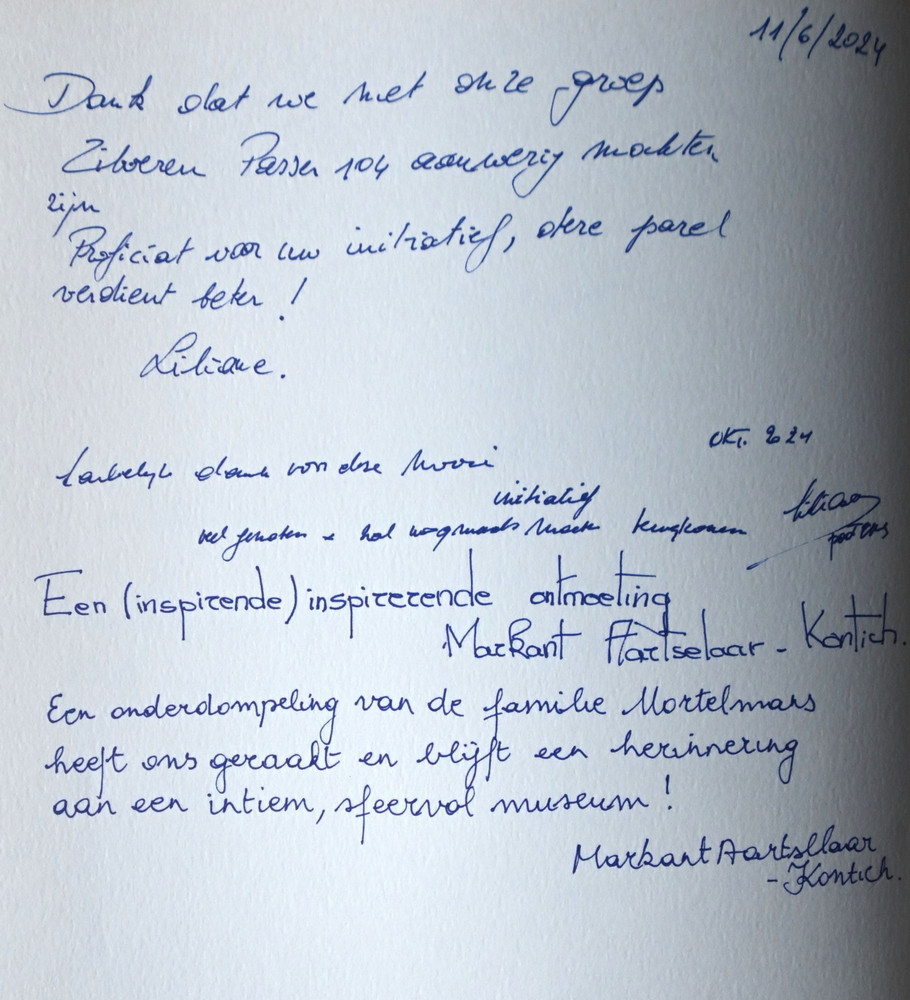 11/6/2024
Dank dat we met onze groep
Zilveren Passer 104 aanwezig mochten
zijn
Proficiat voor uw initiatief, deze parel
verdient beter !
Liliane.
OKT. 2024
Hartelijk dank van deze mooi
initiatief
veel genoten & zal nogmaals moeten terugkomen
Peeters
Een (inspirende) inspirerende ontmoeting
Markant Aartselaar - Kontich.
Een onderdompeling van de familie Mortelmans
heeft ons geraakt en blijft een herinnering
aan een intiem, sfeervol museum !
Markant Aartsllaar
- Kontich.